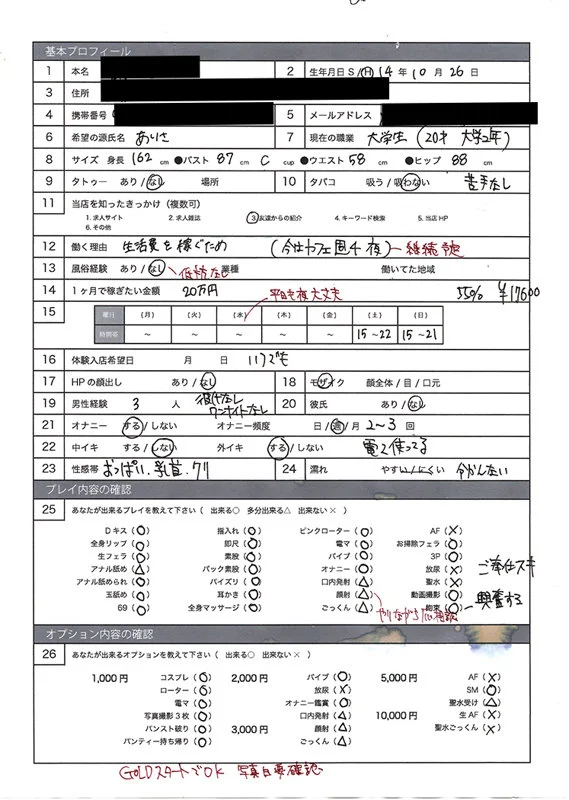 基本プロフィール
1 本名 2 生年月日 S / H 14 年 10 月 26 日
3 住所
4 携帯番号 5 メールアドレス
6 希望の源氏名 ありさ 7 現在の職業 大学生 (20才 大学2年)
8 サイズ 身長 162 cm ●バスト 87 cm C cup ●ウエスト 58 cm ●ヒップ 88 cm
9 タトゥー あり / なし 場所 10 タバコ 吸う / 吸わない 苦手なし
11 当店を知ったきっかけ（複数可）
1. 求人サイト 2. 求人雑誌 3 友達からの紹介 4. キーワード検索 5. 当店 HP
6. その他
12 働く理由 生活費を稼ぐため (今はカフェ 週4 夜)
13 風俗経験 あり / なし 業種 働いてた地域
14 1ヶ月で稼ぎたい金額 20万円 55%
平日も夜大丈夫
15 曜日 (月) (火) (水) (木) (金) (土) (日)
時間帯 ～ ～ ～ ～ ～ 15～22 15～21
16 体験入店希望日 月 日 いつでも
17 HPの顔出し あり / なし 18 モザイク 顔全体 / 目 / 口元
19 男性経験 3 人 ワンナイトなし 20 彼氏 あり / なし
21 オナニー する / しない オナニー頻度 日 / 週 2～3 回
22 中イキ する / しない 外イキ する / しない 電マ使ってる
23 性感帯 おっぱい、乳首、クリ 24 濡れ やすい / にくい 分かんない
プレイ内容の確認
25 あなたが出来るプレイを教えて下さい（ 出来る○ 多分出来る△ 出来ない× ）
Dキス (○) 指入れ (○) ピンクローター (○) AF (×)
全身リップ (○) 即尺 (○) 電マ (○) お掃除フェラ (○)
生フェラ (○) 素股 (○) バイブ (○) 3P (○)
アナル舐め (△) バック素股 (○) オナニー (○) 放尿 (×) ご奉仕スキ
アナル舐められ (○) パイズリ (○) 口内発射 (△) 聖水 (×)
玉舐め (○) 耳かき (○) 顔射 (△) 動画撮影 (○)
69 (○) 全身マッサージ (○) ごっくん (△) 拘束 (○) 興奮する
オプション内容の確認
26 あなたが出来るオプションを教えて下さい（ 出来る○ 出来ない× ）
1,000円 コスプレ (○) 2,000円 バイブ (○) 5,000円 AF (×)
ローター (○) 放尿 (×) SM (○)
電マ (○) オナニー鑑賞 (○) 聖水受け (△)
写真撮影3枚 (○) 口内発射 (△) 10,000円 生AF (×)
パンスト破り (○) 3,000円 顔射 (△) 聖水ごっくん (×)
パンティー持ち帰り (○) ごっくん (△)
GOLDスタートでOK